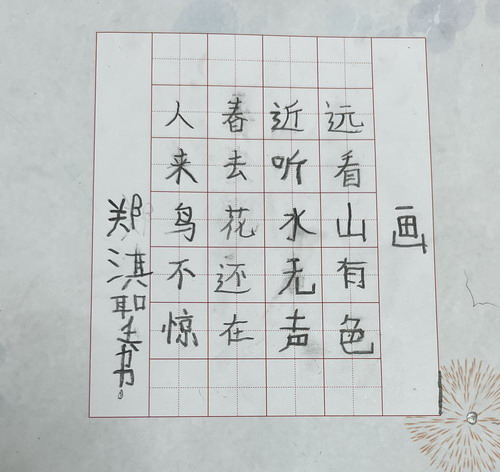 画
远看山有色
近听水无声
春去花还在
人来鸟不惊
郑淇
书。